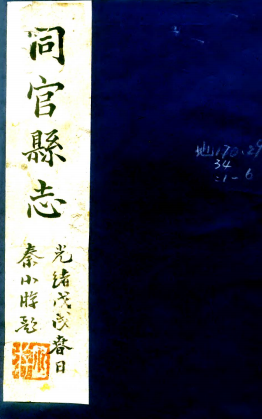 同官縣志
光緒戊戌春日
秦小晖題
地170.29
34
:1-6